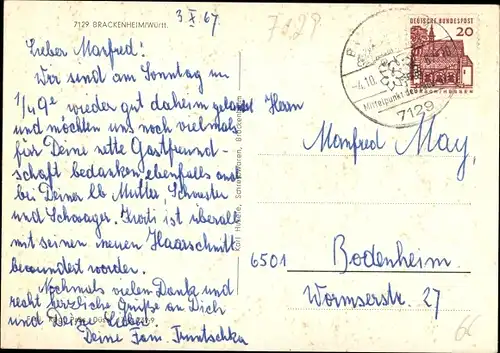 7129 BRACKENHEIM/Württ.
3 X 67
7129
Lieber Manfred!
Wir sind am Sonntag um
1/4 9e wieder gut daheim gelandet
und möchten uns noch vielmals
für Deine nette Gastfreund-
schaft bedanken, ebenfalls auch
bei Deiner lb Mutter, Schwester
und Schwager. ist überall
mit seinem neuen Haarschnitt
bewundert worden.
Nochmals vielen Dank und
recht herzliche Grüße an Dich
und Deine Lieben.
Deine Fam.
DEUTSCHE BUNDESPOST
20
LORSCH/HESSEN
-4.10.
Mittelpunkt des
7129
Herrn
Manfred May,
6501 Bodenheim
Wormserstr. 27
66